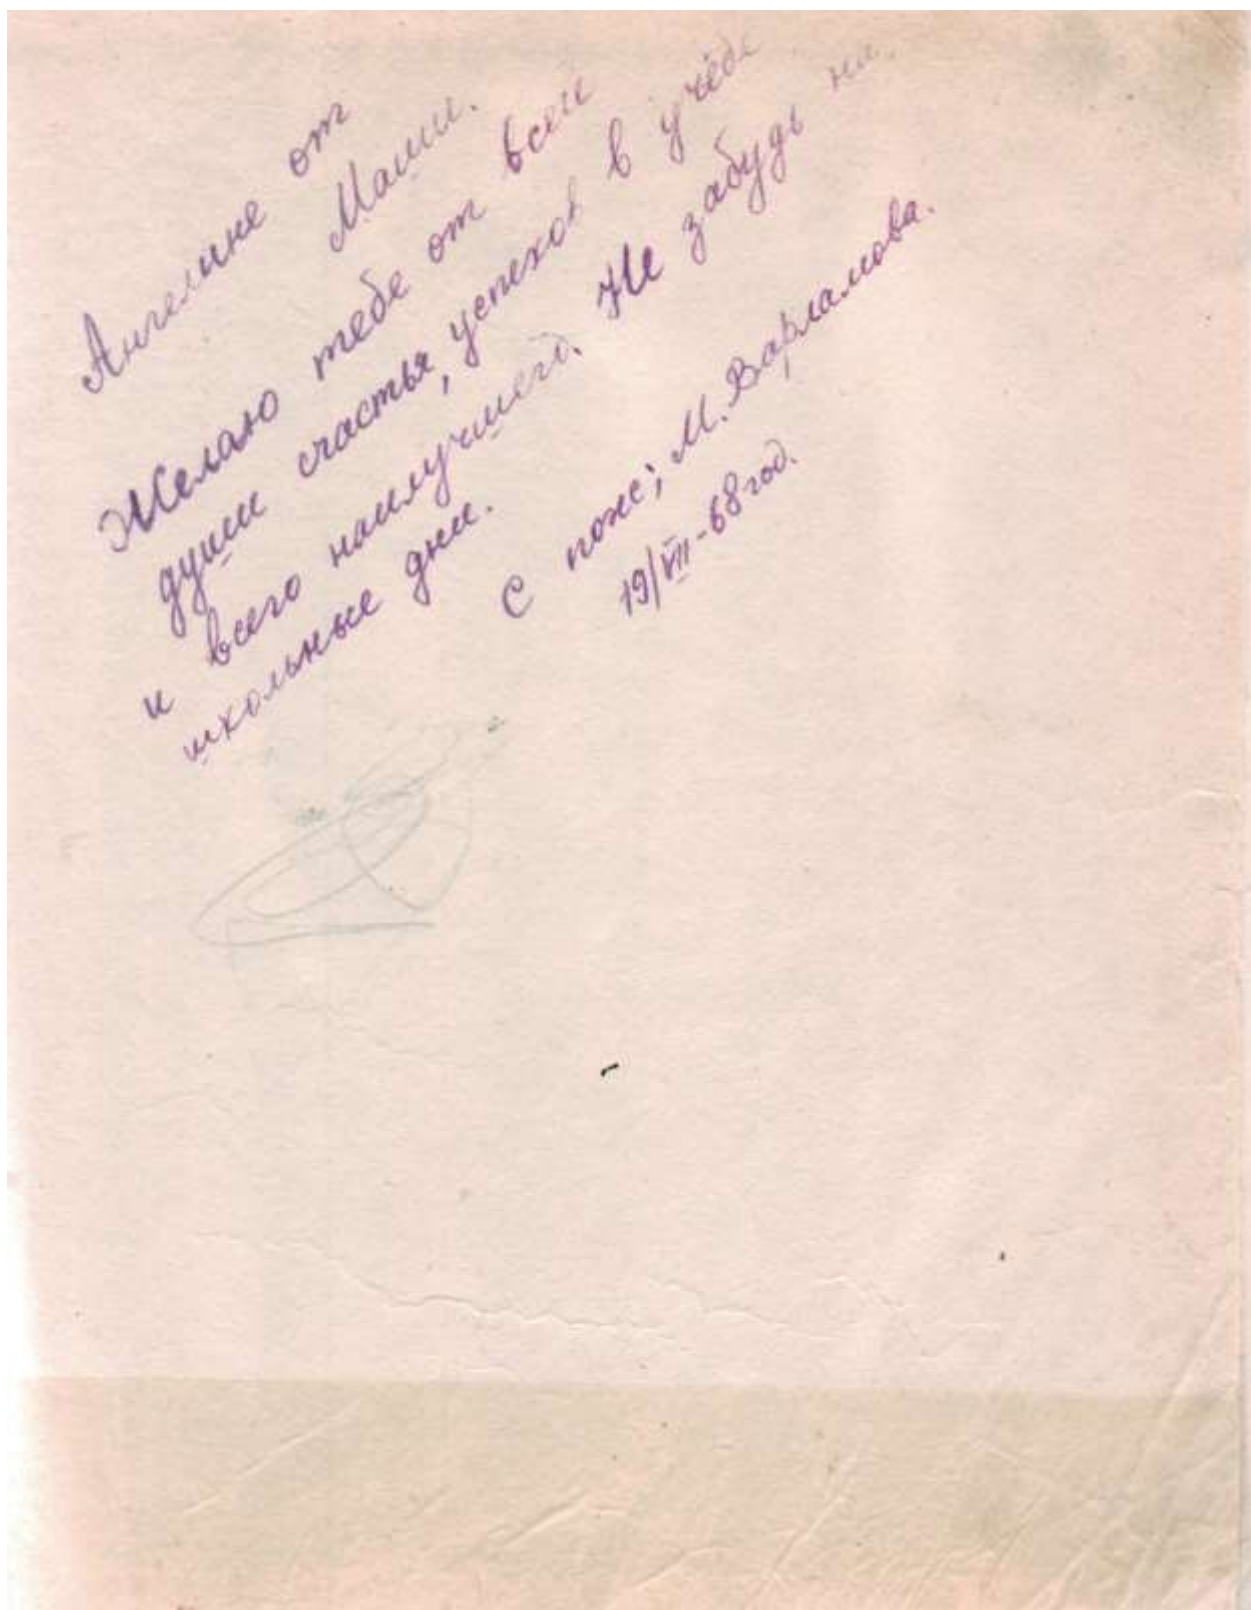 Ангелине от
Маши.
Желаю тебе от всей
души счастья, успехов в учёбе
и всего наилучшего. Не забудь
школьные дни.
С пож; М. Варламова.
19/VII-68 год.